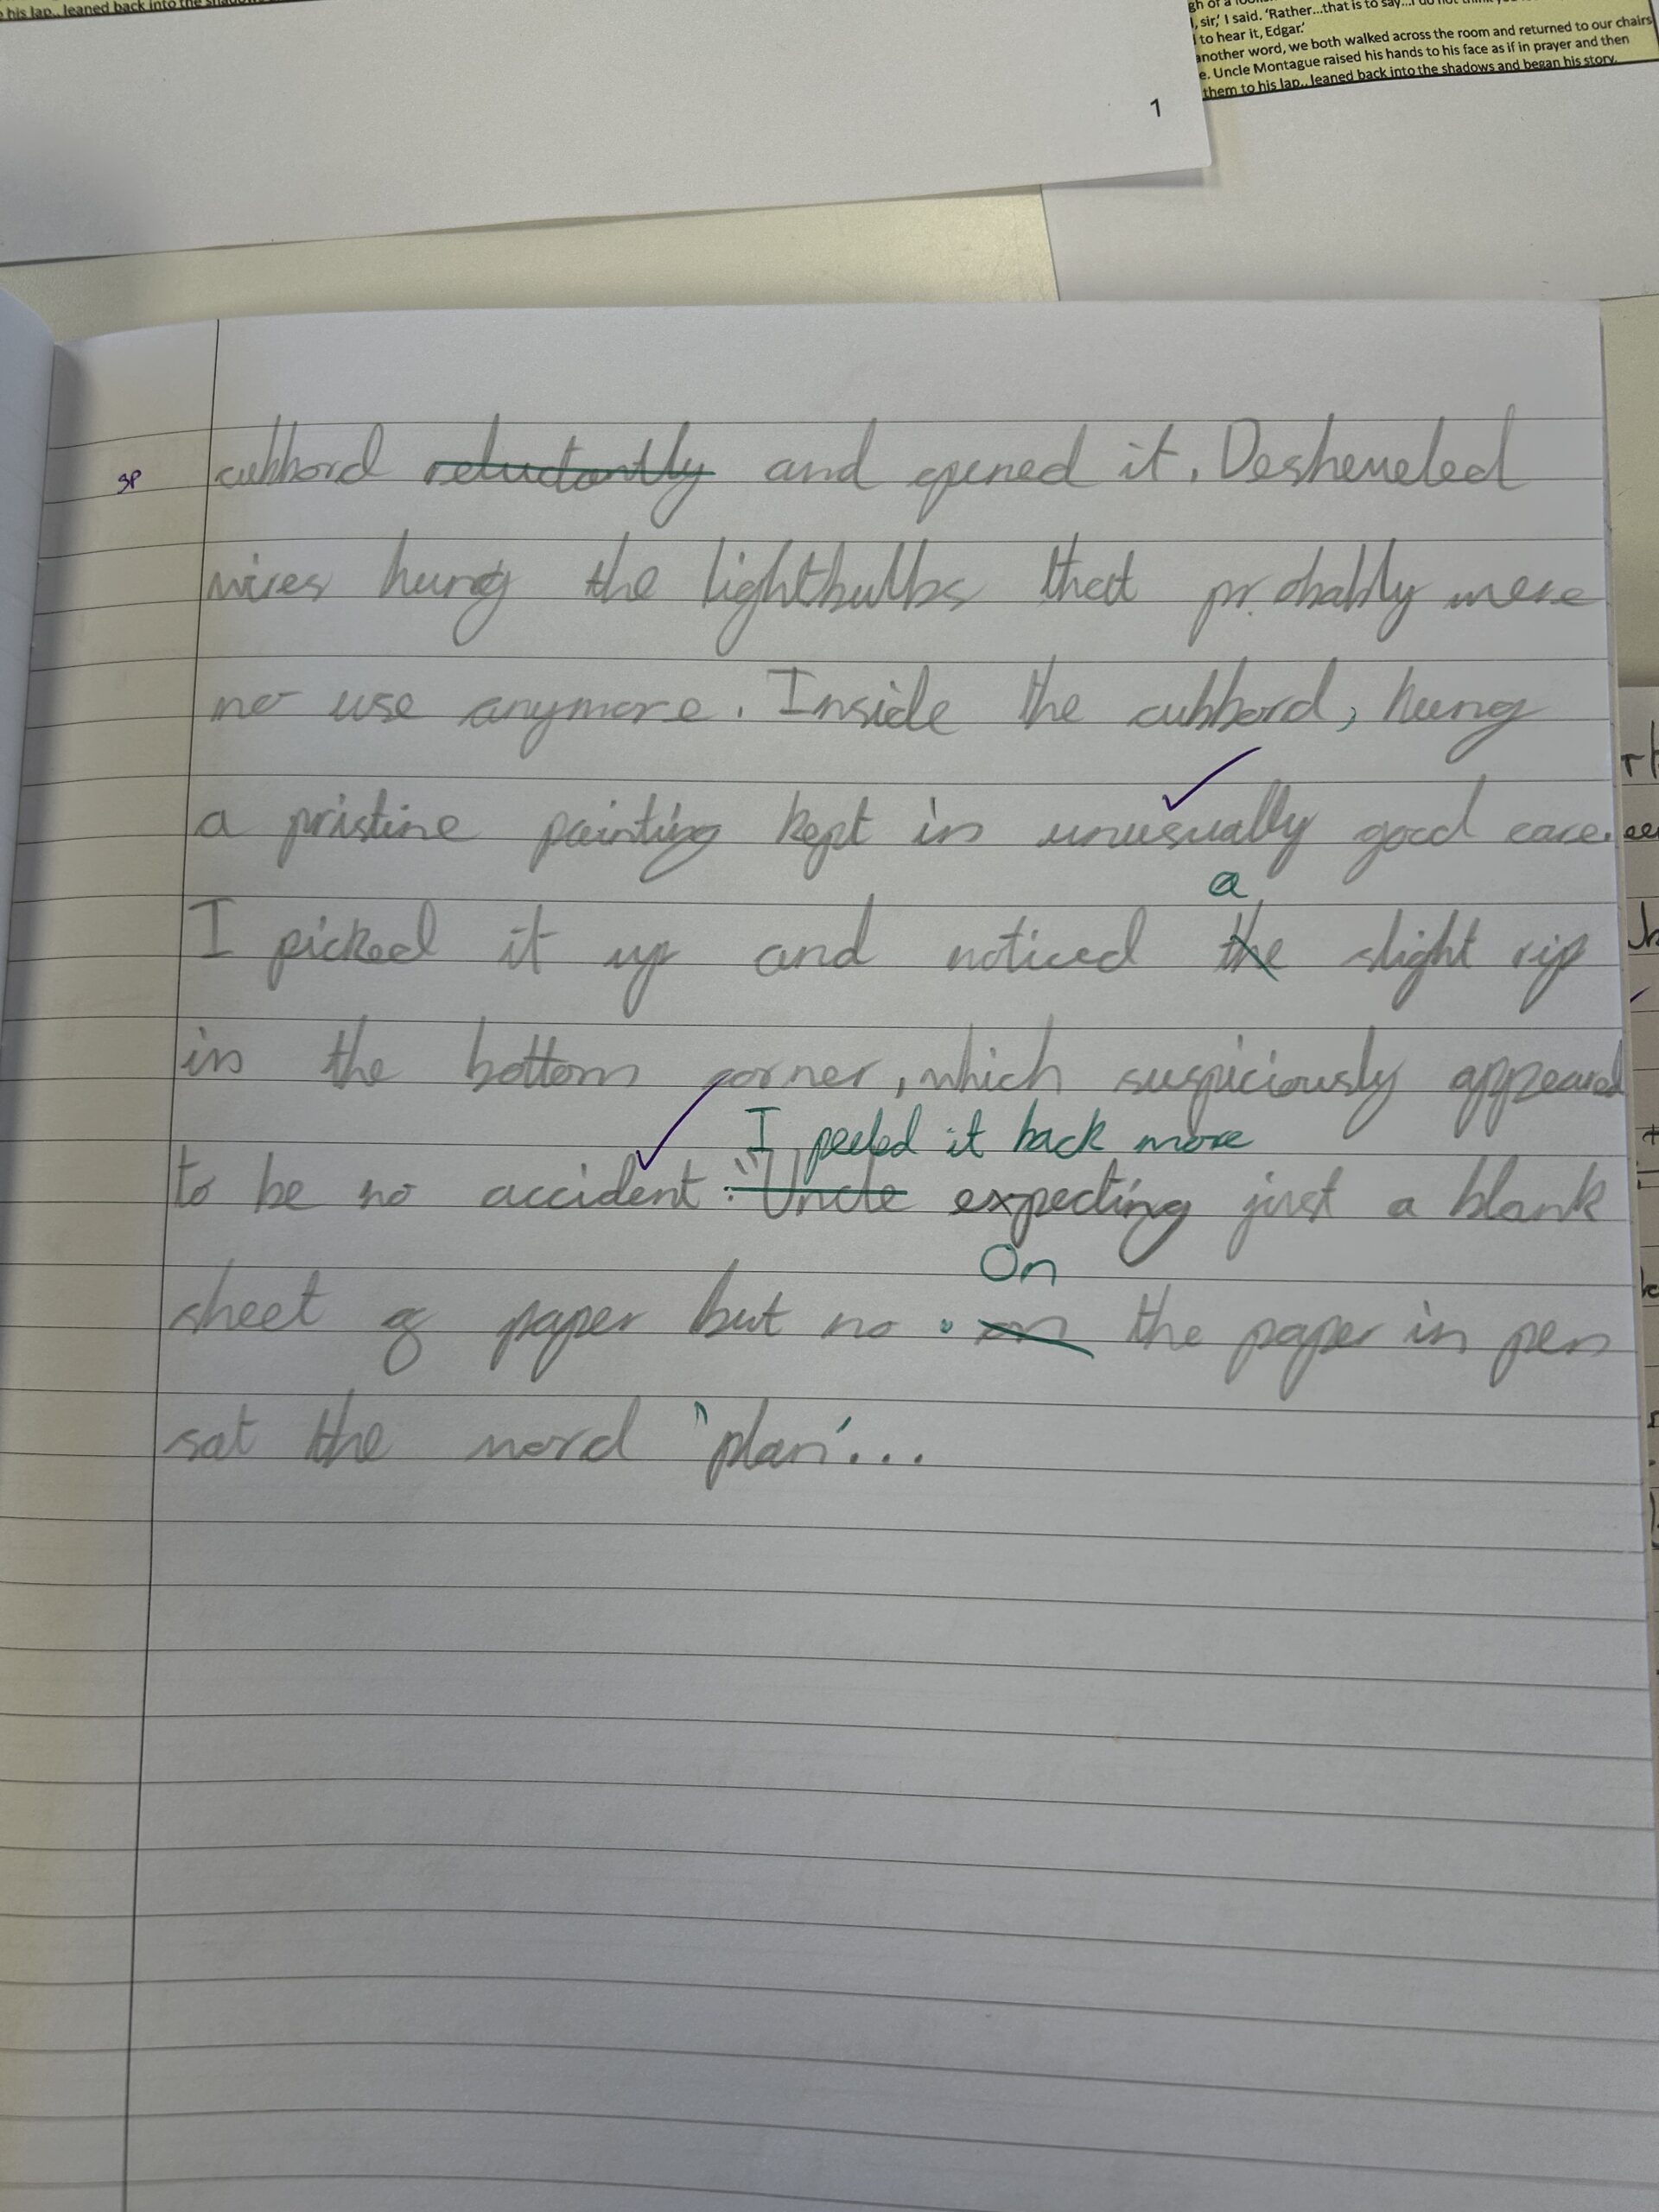 his lap, leaned back into the
I, sir,' I said. 'Rather...that is to say...I do not think
to hear it, Edgar.'
another word, we both walked across the room and returned to our chairs
e. Uncle Montague raised his hands to his face as if in prayer and then
them to his lap, leaned back into the shadows and began his story.
1
sp cubbord reluctantly and opened it. Desheveled
wires hung the lightbulbs that probably were
no use anymore. Inside the cubbord, hung
a pristine painting kept in unusually good care.
a
I picked it up and noticed the slight rip
in the bottom corner, which suspiciously appeared
I peeled it back more
to be no accident. "Uncle expecting just a blank
On
sheet of paper but no. on the paper in pen
sat the word 'plan'...